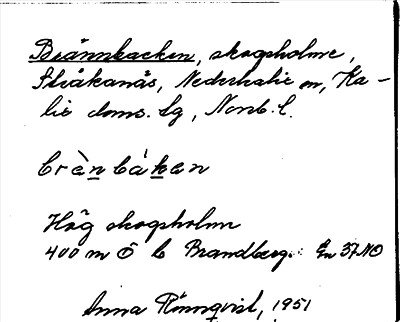 Brännbacken, skogsholme,
Stråkanäs, Nederkalix sn, Ka-
lix doms. lg, Norrb. l.
brὲn bàkan
Hög skogsholm
400 m Ö b Brandberg. En 37 NO
Anna Rönnqvist, 1951